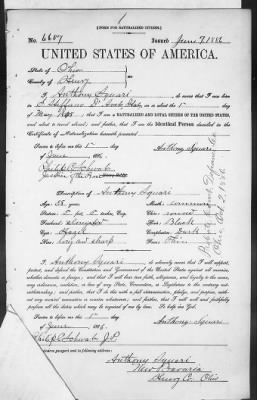 [FORM FOR NATURALIZED CITIZEN.]
No. 6607 Issued June 7 1886
UNITED STATES OF AMERICA.
State of Ohio
County of Henry
I Anthony Squari, do swear that I was born
in S. Steffano D' on or about the
day of May; that I am a NATURALIZED AND LOYAL CITIZEN OF THE UNITED STATES,
and about to travel abroad; and further, that I am the Identical Person described in the
Certificate of Naturalization herewith presented.
Sworn to before me this 5 day
of June 1886.
Anthony Squari
Philip C. Schwab
Justice of the Peace
Description of Anthony Squari
Age: 38 years Mouth: common
Stature: 5 feet, 5 inches, Eng. Chin: round
Forehead: Hair: Black
Eyes: Hazel Complexion: Dark
Nose: long and sharp Face: Thin
I, Anthony Squari, do solemnly swear that I will support,
protect, and defend the Constitution and Government of the United States against all enemies,
whether domestic or foreign; and that I will bear true faith, allegiance, and loyalty to the same,
any ordinance, resolution, or law of any State, Convention, or Legislature to the contrary not-
withstanding; and further, that I do this with a full determination, pledge, and purpose, with-
out any mental reservation or evasion whatsoever; and further, that I will well and faithfully
perform all the duties which may be required of me by law. So help me God.
Sworn to before me this 5 day
of June 1886.
Anthony Squari
Philip C. Schwab J.P.
Anthony Squari
New Bavaria
Henry Co. Ohio